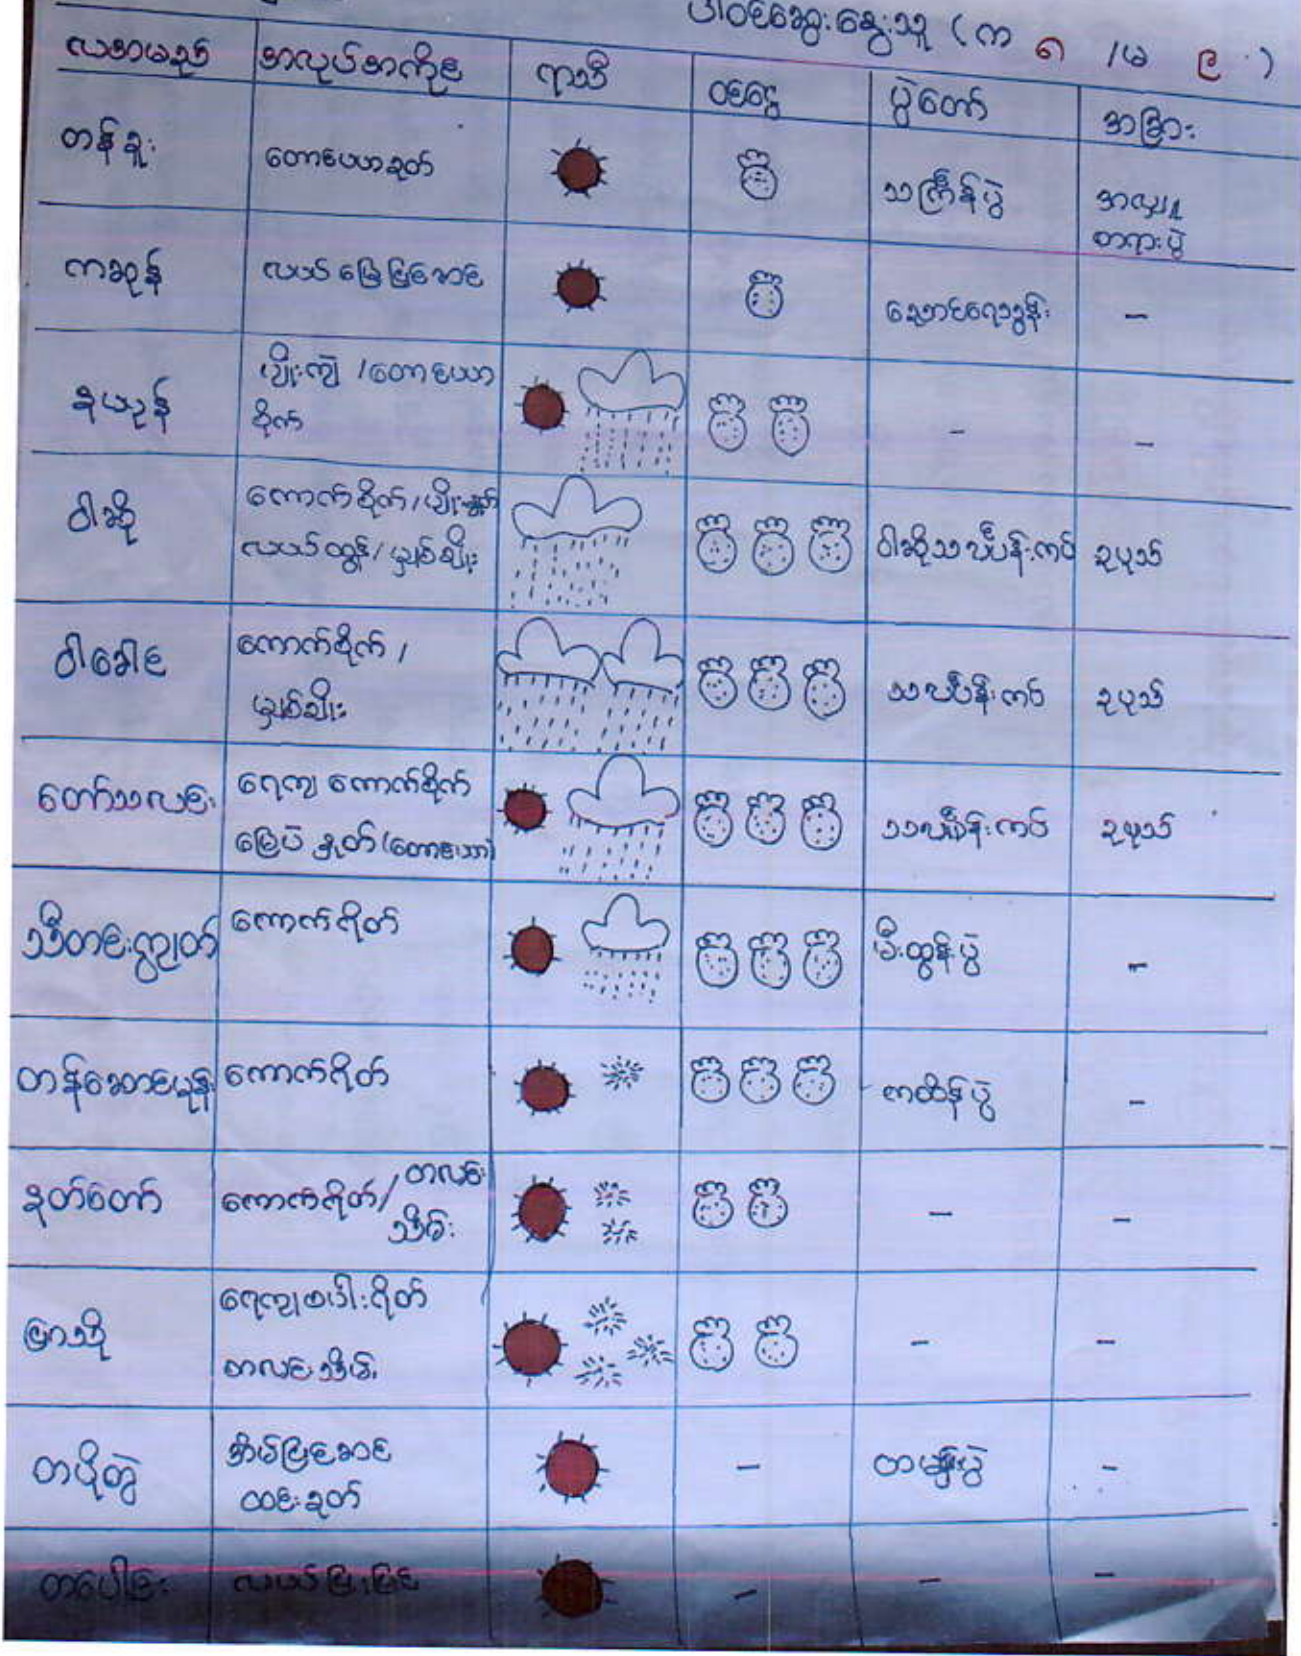 ပါဝင်ဆွေးနွေးသူ (က ၈ /မ ၉ )
လအမည် အလုပ်အကိုင် ရာသီ ဝင်ငွေ ပွဲတော် အခြား
တန်ခူး တောင်ယာခုတ် သင်္ကြန်ပွဲ အလှူ
တရားပွဲ
ကဆုန် လယ်မြေပြင်ဆင် ညောင်ရေသွန်း -
နယုန် ပျိုးကျဲ /တောင်ယာ - -
စိုက်
ဝါဆို ကောက်စိုက်/ပျိုးနှုတ် ဝါဆိုသင်္ပန်းကပ် ဥပုသ်
လယ်ထွန်/မျှစ်ချိုး
ဝါခေါင် ကောက်စိုက် / သင်္ပန်းကပ် ဥပုသ်
မျှစ်ချိုး
တော်သလင်း ရေကျ ကောက်စိုက် သင်္ပန်းကပ် ဥပုသ်
မြေပဲ နှုတ် (တောင်ယာ)
သီတင်းကျွတ် ကောက်ရိတ် မီးထွန်းပွဲ -
တန်ဆောင်မုန်း ကောက်ရိတ် ကထိန်ပွဲ -
နတ်တော် ကောက်ရိတ်/တလင်း - -
သိမ်း
ပြာသို ရေကျစပါးရိတ် - -
တလင်းသိမ်း
တပို့တွဲ အိမ်ပြင်ဆင် - ထမနဲပွဲ -
ထင်းခုတ်
တပေါင်း လယ်ပြုပြင် - - -